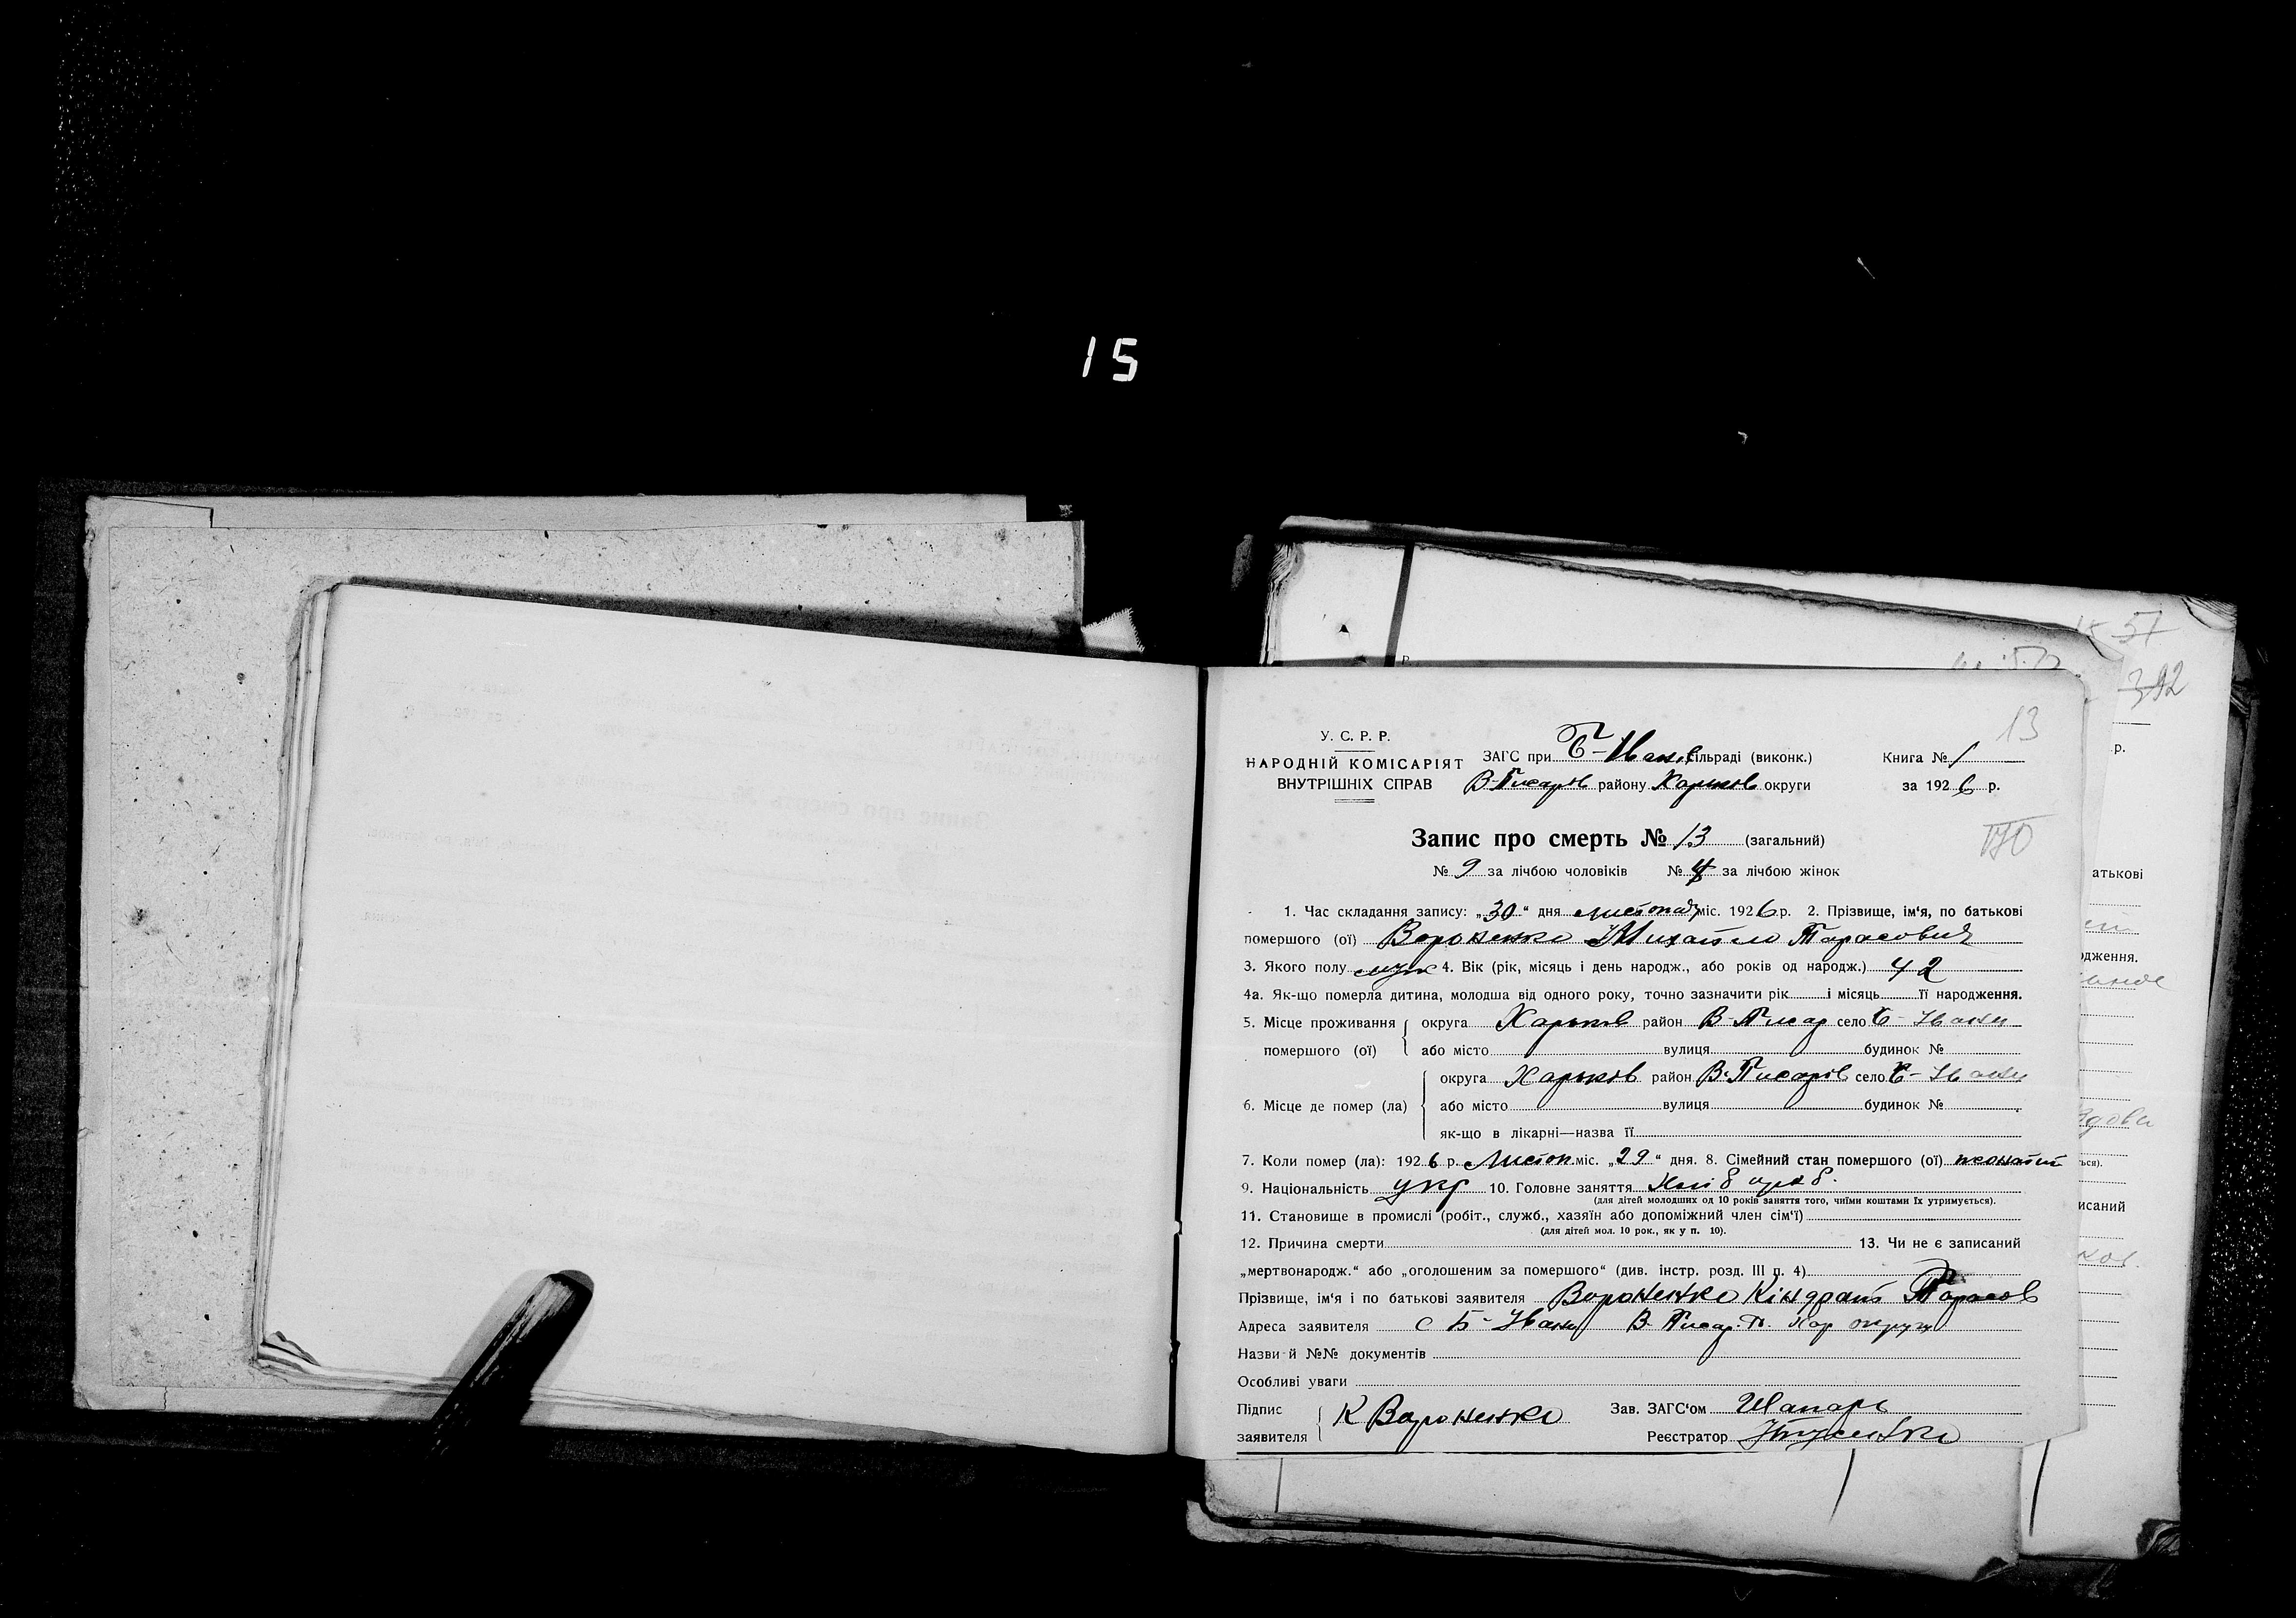 15
57
392
13
У. С. Р. Р.
НАРОДНІЙ КОМІСАРІЯТ
ВНУТРІШНІХ СПРАВ
ЗАГС при Б-Іван. сільраді (виконк.)
В-Писарів району Харьків округи
Книга № 1
за 1926 р.
Запис про смерть № 13 (загальний)
№ 9 за лічбою чоловіків № 4 за лічбою жінок
1. Час складання запису: „30“ дня листопад міс. 1926 р. 2. Прізвище, ім'я, по батькові
помершого (ої) Вороненко Михайло Тарасович
3. Якого полу муж 4. Вік (рік, місяць і день народж., або років од народж.) 42
4а. Як-що померла дитина, молодша від одного року, точно зазначити рік і місяць її народження.
5. Місце проживання помершого (ої) округа Харьків район В-Писар село Б-Івани
або місто вулиця будинок №
6. Місце де помер (ла) округа Харьків район В-Писарів село Б-Івани
або місто вулиця будинок №
як-що в лікарні—назва її
7. Коли помер (ла): 1926 р. Листоп міс. „29“ дня. 8. Сімейний стан помершого (ої) жонатий
9. Національність укр 10. Головне заняття Хліб
(для дітей молодших од 10 років заняття того, чиїми коштами їх утримується).
11. Становище в промислі (робіт., служб., хазяїн або допоміжний член сім'ї)
(для дітей мол. 10 рок., як у п. 10).
12. Причина смерти 13. Чи не є записаний
„мертвонародж.“ або „оголошеним за помершого“ (див. інстр. розд. III п. 4)
Прізвище, ім'я і по батькові заявителя Вороненко Кіндрат Тарасов
Адреса заявителя с Б-Івани В-Писар. Р. Хар округи
Назви й №№ документів
Особливі уваги
Підпис заявителя К Вороненко
Зав. ЗАГС'ом Шапарь
Реєстратор
р.
атькові
одження.
ься).
исаний